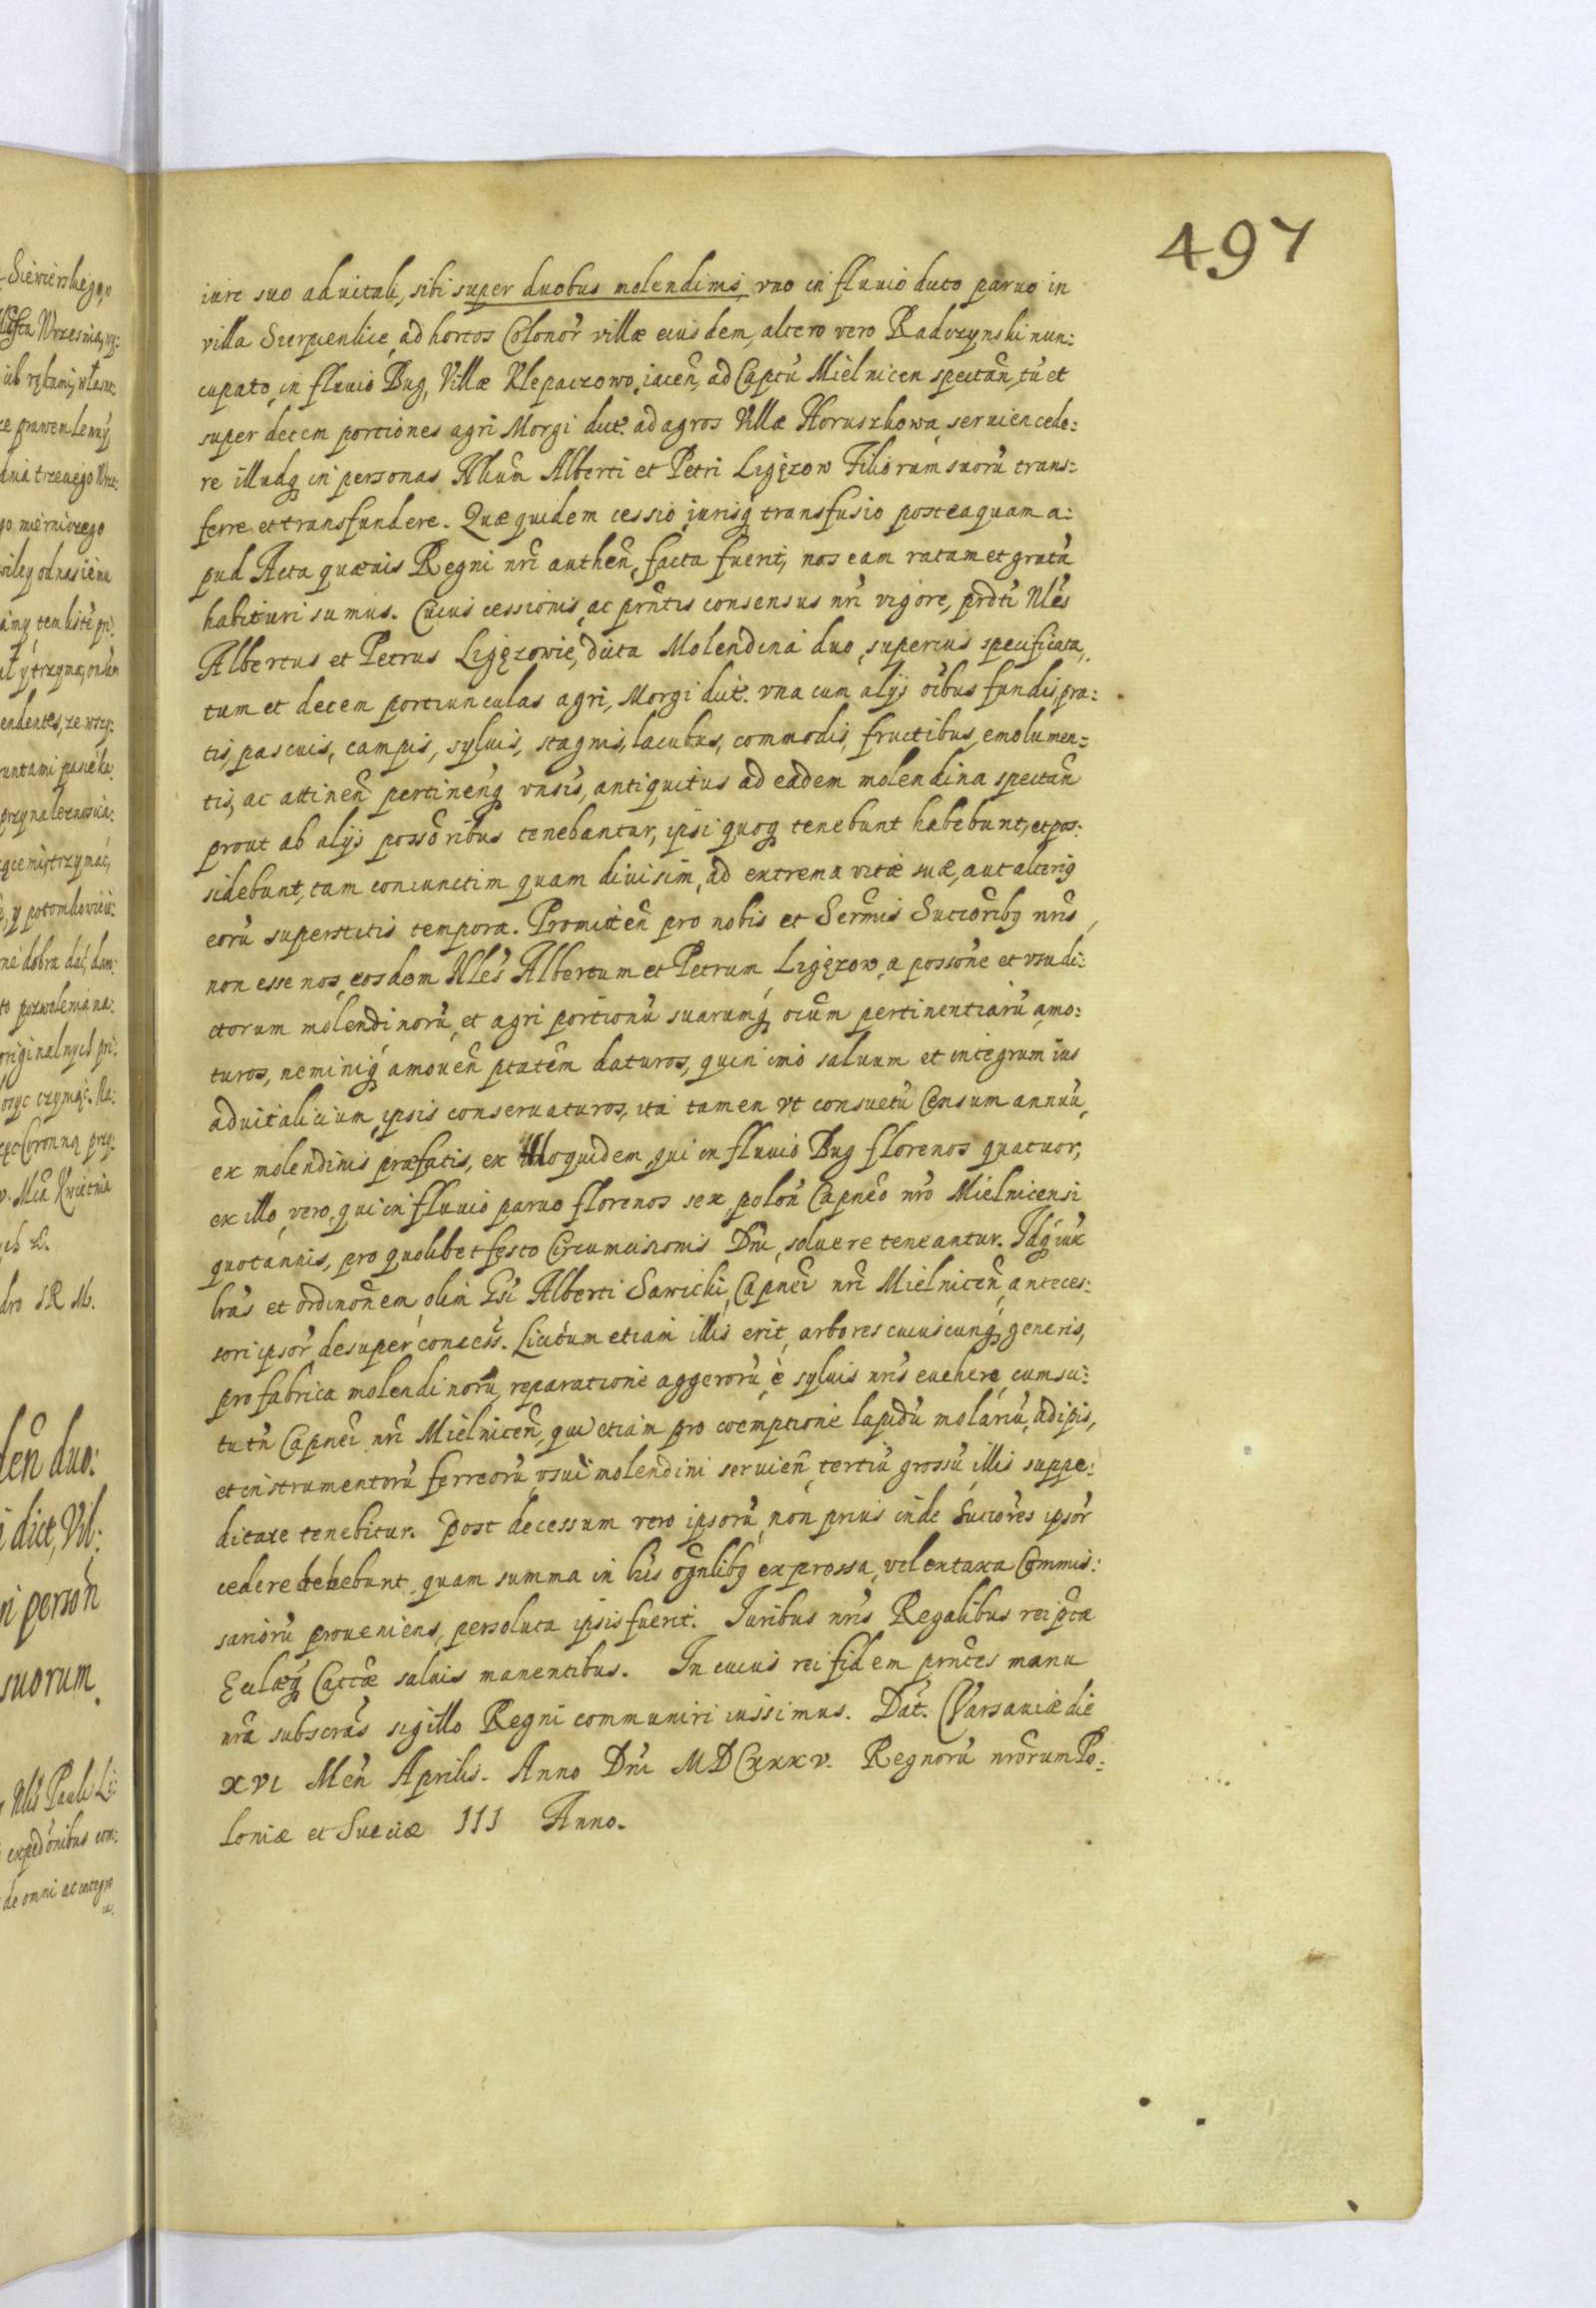 497
iure suo aduitali, sibi super duobus molendinis, vno in fluuio dicto paruo in
villa Sierpienlice, ad hortos Colonor̃ villæ eiusdem, altero vero Radczynski nun:
cupato, in fluuio Bug, Villæ Klepaczowo, iaceñ, ad Captũ Mielnicen spectañ, tũ et
super decem portiones agri Morgi dict. ad agros Villæ Horuszkowa, seruien cede:
re illudq in personas Nlium Alberti et Petri Ligęzow Filiorum suorũ trans:
ferre et transfundere. Quæ quidem cessio, iurisq transfusio posteaquam a:
pud Acta quæuis Regni nri autheñ, facta fuerit, nos eam ratam et gratã
habituri sumus. Cuius cessionis, ac prñtis consensus nri vigore, prdti Nles
Albertus et Petrus Ligęzowie, dicta Molendina duo, superius specificata,
tum et decem portiunculas agri, Morgi dict. vna cum alijs oibus fundis, pra:
tis, pascuis, campis, syluis, stagnis, lacubus, commodis, fructibus, emolumen:
tis, ac attineñ pertinenq vnsis, antiquitus ad eadem molendina spectañ
prout ab alijs possoribus tenebantur, ipsi quoq tenebunt habebunt, et pos:
sidebunt, tam coniunctim quam diuisim, ad extrema vitæ suæ, aut alteriq
eorũ superstitis tempora. Promitteñ pro nobis et Sermis Succoribq nris,
non esse nos, eosdem Nles Albertum et Petrum Ligęzow, a possone et vsu di:
ctorum molendinorũ, et agri portionũ suarumq oium pertinentiarũ amo:
turos, neminiq amoueñ ptatem daturos, quin imo saluum et integrum ius
aduitalicium, ipsis conseruaturos, ita tamen vt consuetũ Censum annuũ,
ex molendinis præfatis, ex illo quidem, qui in fluuio Bug florenos quatuor,
ex illo vero, qui in fluuio paruo florenos sex, poloñ Capneo nro Mielnicensi
quotannis, pro quolibet festo Circumcisionis Dni, soluere teneantur. Idq iux
lras et ordinonem olim Gsi Alberti Sawicki, Capnei nri Mielniceñ, anteces:
sori ipsor̃ desuper concess. Licitum etiam illis erit, arbores cuiuscunq generis,
pro fabrica molendinorũ, reparatione aggerorũ, è syluis nris euehere, cum sci:
tu tñ Capnei nri Mielniceñ, qui etiam pro coemptione lapidũ molariũ, adipis,
et instrumentorũ ferreorũ, vsui molendini seruieñ, tertiũ grossũ, illis suppe:
ditare tenebitur. Post decessum vero ipsorũ, non prius inde Succores ipsor̃
cedere debebunt, quam summa in his ognlibq expressa, vel ex taxa Commis:
sariorũ proueniens, persoluta ipsis fuerit. Iuribus nris Regalibus reipcæ
Eclæq Cattcæ saluis manentibus. In cuius rei fidem prntes manu
nra subscras sigillo Regni communiri iussimus. Dat. Varsauiæ die
XVI Meñ Aprilis. Anno Dni MDCXXXV. Regnorũ nrorum Po:
loniæ et Sueciæ III Anno.